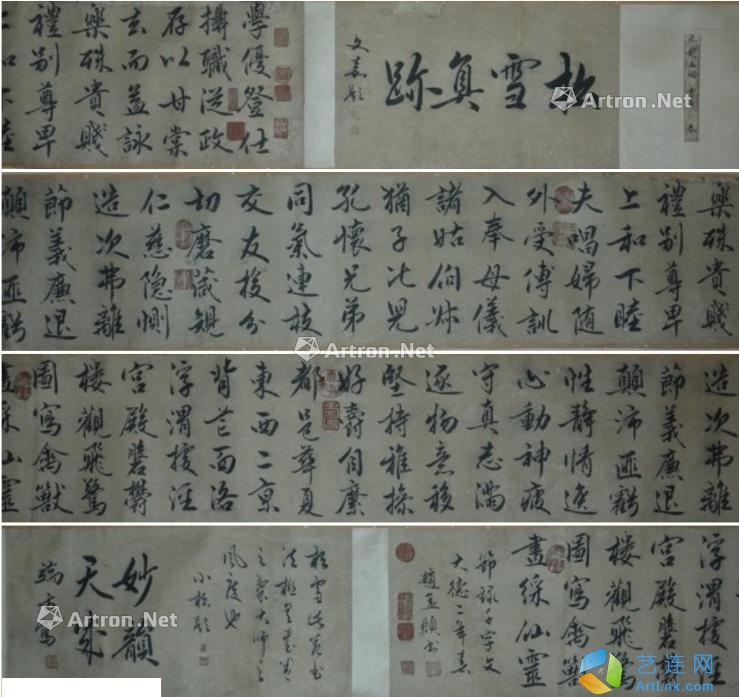 松雪真跡
文嘉題
學優登仕
攝職從政
存以甘棠
去而益詠
樂殊貴賤
禮別尊卑
上和下睦
樂殊貴賤
禮別尊卑
上和下睦
夫唱婦隨
外受傅訓
入奉母儀
諸姑伯叔
猶子比兒
孔懷兄弟
同氣連枝
交友投分
切磨箴規
仁慈隱惻
造次弗離
節義廉退
顛沛匪虧
造次弗離
節義廉退
顛沛匪虧
性靜情逸
心動神疲
守真志滿
逐物意移
堅持雅操
好爵自縻
都邑華夏
東西二京
背芒面洛
浮渭據涇
宮殿磐鬱
樓觀飛驚
圖寫禽獸
畫綵仙靈
浮渭據涇
宮殿磐鬱
樓觀飛驚
圖寫禽獸
畫綵仙靈
節錄千字文
大德二年春
趙孟頫書
松雪此卷書
法極
之氣大師之
風度也
小松題
妙韻
天成
端方寫
Artron.Net
Artron.Net
Artron.Net
Artron.Net
Artron.Net
艺连网
ArtLnk.com